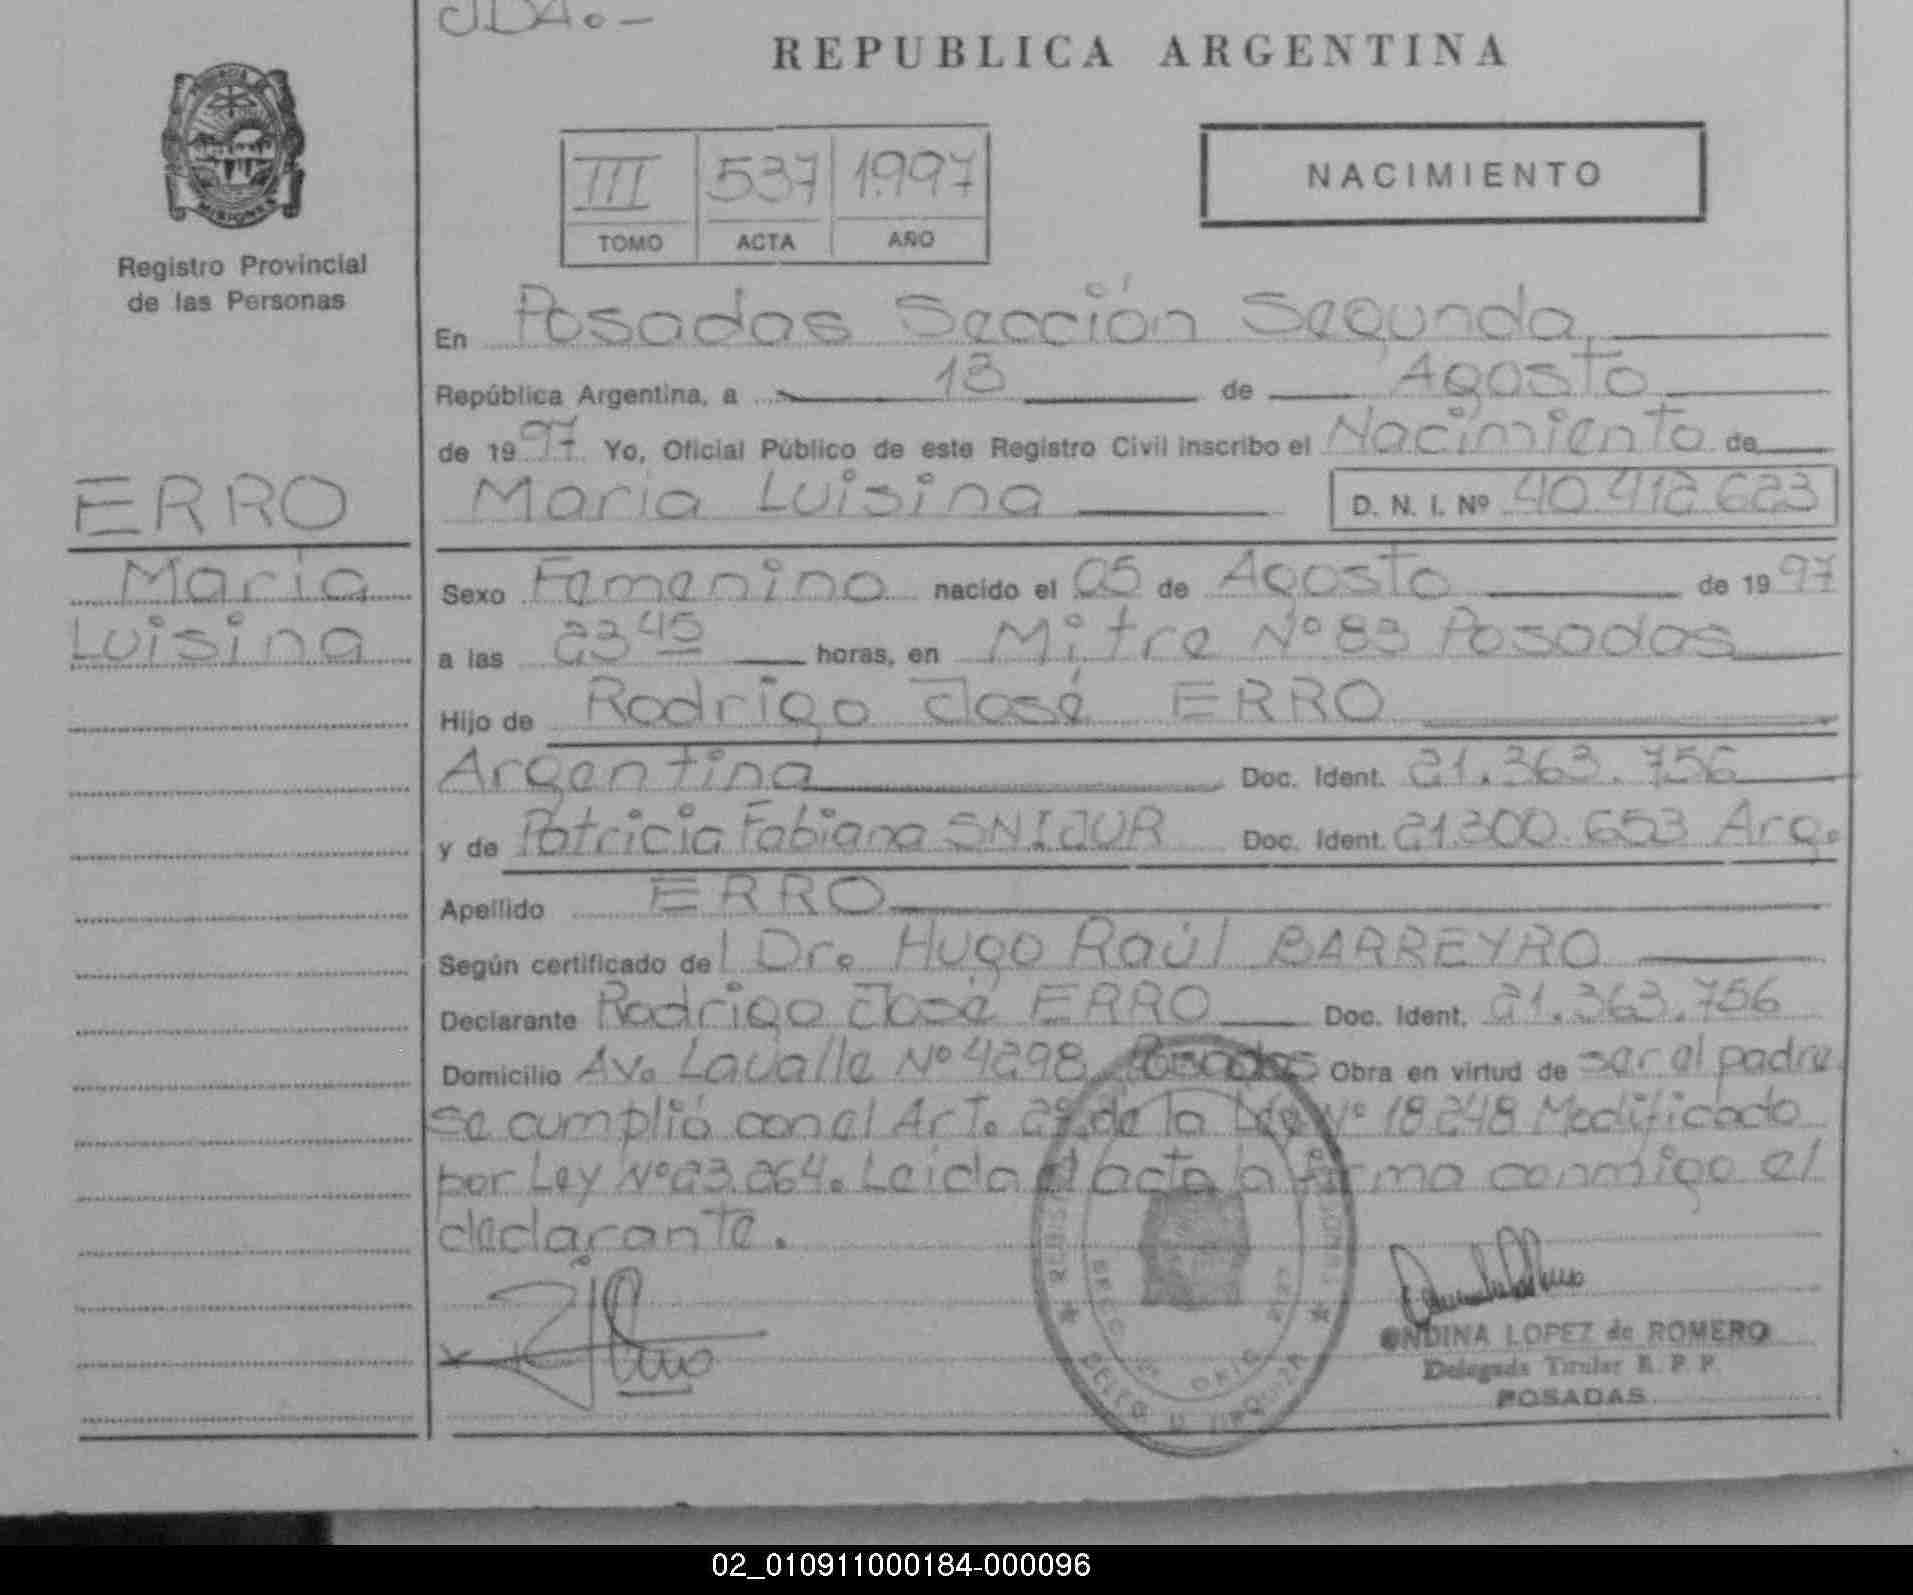 JDA.-
REPUBLICA ARGENTINA
III 537 1.997
TOMO ACTA AÑO
NACIMIENTO
MISIONES
Registro Provincial
de las Personas
ERRO
Maria
Luisina
En Posadas Sección Segunda
República Argentina, a 13 de Agosto
de 1997 Yo, Oficial Público de este Registro Civil inscribo el Nacimiento de
Maria Luisina D. N. I. Nº 40.412.623
Sexo Femenino nacido el 05 de Agosto de 1997
a las 23 45 horas, en Mitre Nº 83 Posadas
Hijo de Rodrigo José ERRO
Argentina Doc. Ident. 21.363.756
y de Patricia Fabiana SNIJUR Doc. Ident. 21.300.653 Arg.
Apellido ERRO
Según certificado del Dr. Hugo Raúl BARREYRO
Declarante Rodrigo José ERRO Doc. Ident. 21.363.756
Domicilio Av. Lavalle Nº 4298 Posadas Obra en virtud de ser el padre
se cumplió con el Art. 2º de la Ley Nº 18248 Modificado
por Ley Nº 23.264. Leida el acta la firma conmigo el
declarante.
ONDINA LOPEZ de ROMERO
Delegada Titular R. P. P.
POSADAS
02_010911000184-000096